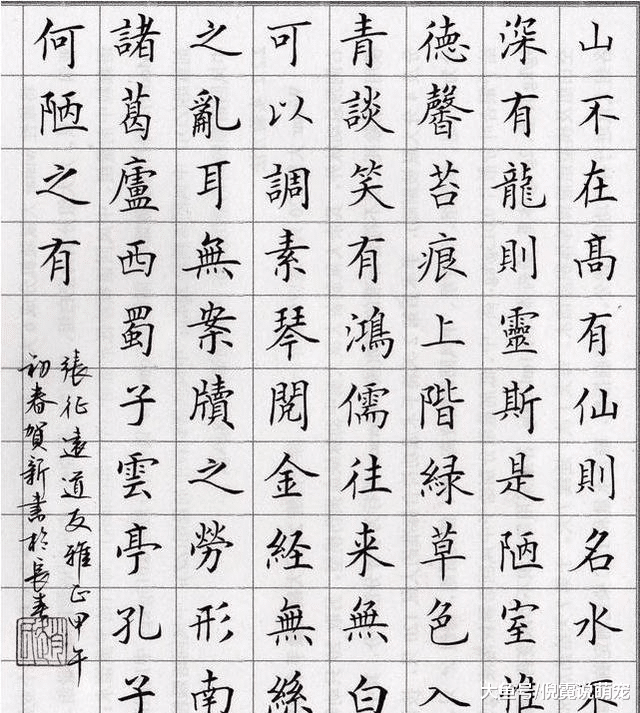 山不在髙有仙則名水不
深有龍則靈斯是陋室惟
德馨苔痕上階緑草色入
青談笑有鴻儒往来無白
可以調素琴閱金経無絲
之亂耳無案牘之勞形南
諸葛廬西蜀子雲亭孔子
何陋之有
張征遠道友雅正甲午
初春賀新書於長春
大鱼号/倪霓说萌宠